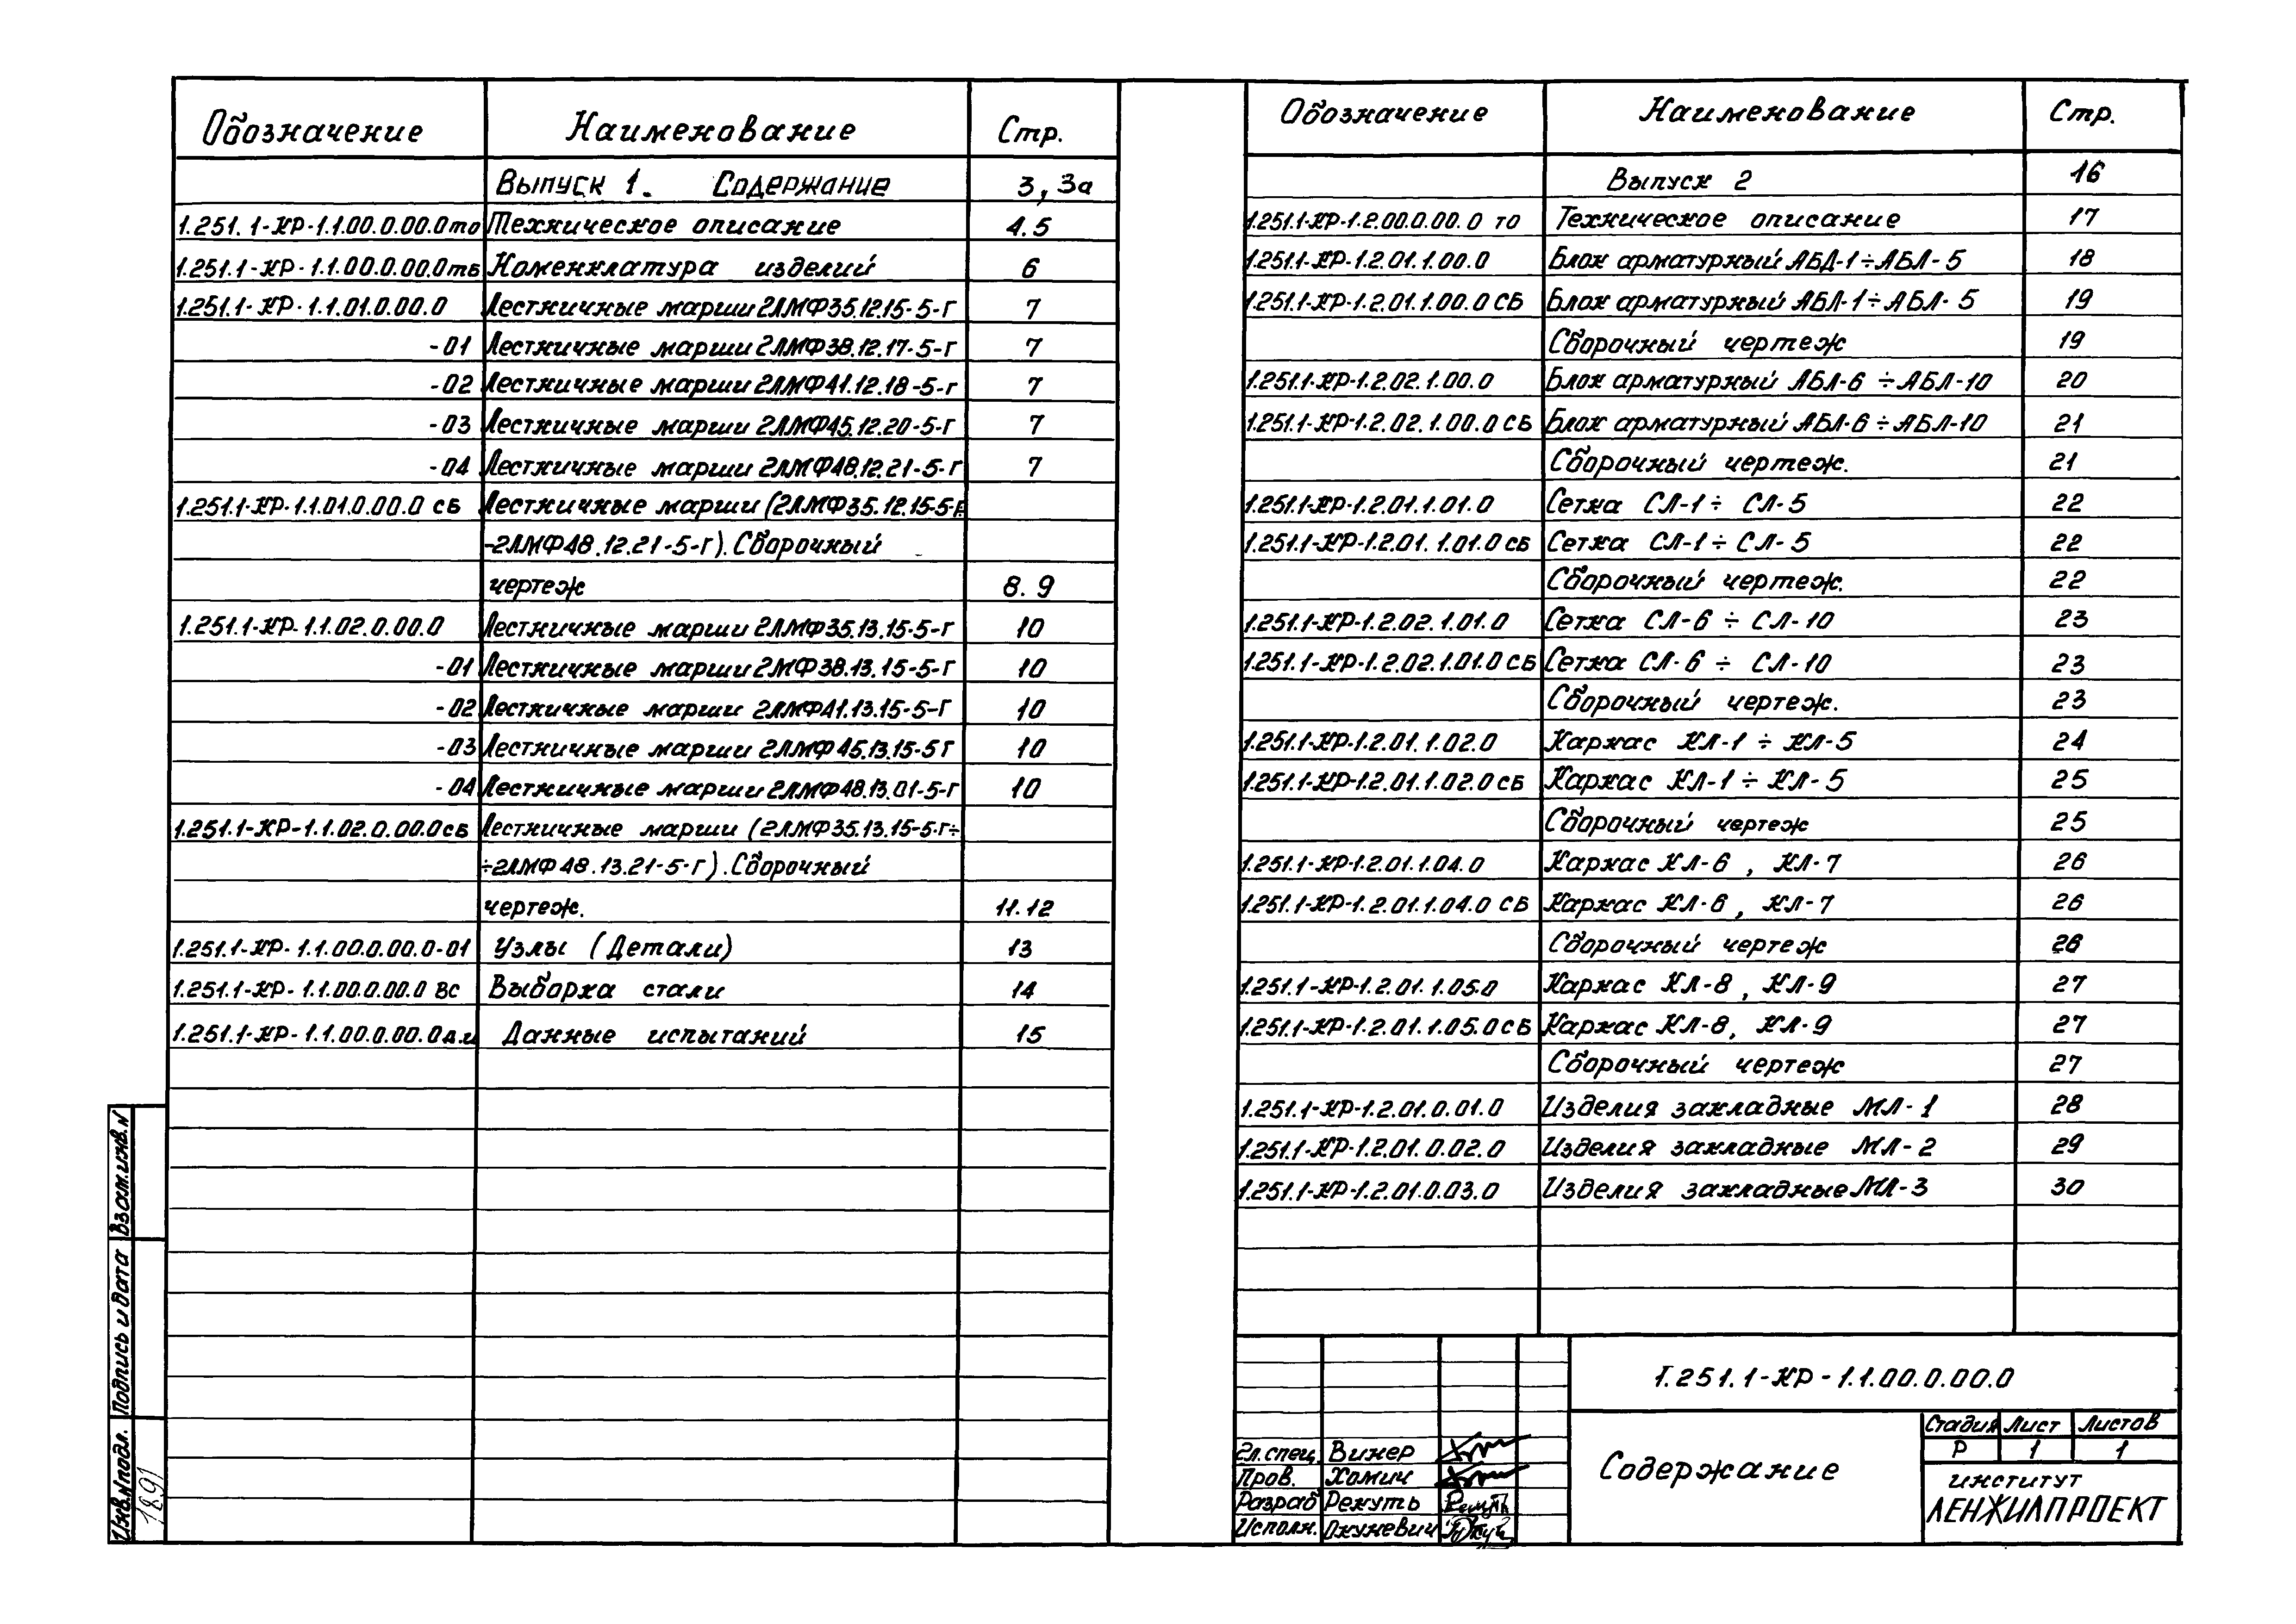 Обозначение Наименование Стр.
Выпуск 1. Содержание 3, 3а
1.251.1-КР-1.1.00.0.00.0то Техническое описание 4.5
1.251.1-КР-1.1.00.0.00.0тб Номенклатура изделий 6
1.251.1-КР-1.1.01.0.00.0 Лестничные марши 2ЛМФ35.12.15-5-г 7
-01 Лестничные марши 2ЛМФ38.12.17-5-г 7
-02 Лестничные марши 2ЛМФ41.12.18-5-г 7
-03 Лестничные марши 2ЛМФ45.12.20-5-г 7
-04 Лестничные марши 2ЛМФ48.12.21-5-г 7
1.251.1-КР-1.1.01.0.00.0 сб Лестничные марши (2ЛМФ35.12.15-5-г
-2ЛМФ48.12.21-5-г). Сборочный
чертеж 8.9
1.251.1-КР-1.1.02.0.00.0 Лестничные марши 2ЛМФ35.13.15-5-г 10
-01 Лестничные марши 2МФ38.13.15-5-г 10
-02 Лестничные марши 2ЛМФ41.13.15-5-г 10
-03 Лестничные марши 2ЛМФ45.13.15-5г 10
-04 Лестничные марши 2ЛМФ48.13.01-5-г 10
1.251.1-КР-1.1.02.0.00.0сб Лестничные марши (2ЛМФ35.13.15-5-г÷
÷2ЛМФ48.13.21-5-г). Сборочный
чертеж. 11.12
1.251.1-КР-1.1.00.0.00.0-01 Узлы (Детали) 13
1.251.1-КР-1.1.00.0.00.0 ВС Выборка стали 14
1.251.1-КР-1.1.00.0.00.0д.и Данные испытаний 15
Взам.инв.N
Подпись и дата
Инв.Nподл.
1891
Обозначение Наименование Стр.
Выпуск 2 16
1.251.1-КР-1.2.00.0.00.0 то Техническое описание 17
1.251.1-КР-1.2.01.1.00.0 Блок арматурный АБД-1÷АБЛ-5 18
1.251.1-КР-1.2.01.1.00.0 СБ Блок арматурный АБЛ-1÷АБЛ-5 19
Сборочный чертеж 19
1.251.1-КР-1.2.02.1.00.0 Блок арматурный АБЛ-6÷АБЛ-10 20
1.251.1-КР-1.2.02.1.00.0 СБ Блок арматурный АБЛ-6÷АБЛ-10 21
Сборочный чертеж. 21
1.251.1-КР-1.2.01.1.01.0 Сетка СЛ-1÷СЛ-5 22
1.251.1-КР-1.2.01.1.01.0 сб Сетка СЛ-1÷СЛ-5 22
Сборочный чертеж. 22
1.251.1-КР-1.2.02.1.01.0 Сетка СЛ-6÷СЛ-10 23
1.251.1-КР-1.2.02.1.01.0 СБ Сетка СЛ-6÷СЛ-10 23
Сборочный чертеж. 23
1.251.1-КР-1.2.01.1.02.0 Каркас КЛ-1÷КЛ-5 24
1.251.1-КР-1.2.01.1.02.0 сб Каркас КЛ-1÷КЛ-5 25
Сборочный чертеж 25
1.251.1-КР-1.2.01.1.04.0 Каркас КЛ-6, КЛ-7 26
1.251.1-КР-1.2.01.1.04.0 СБ Каркас КЛ-6, КЛ-7 26
Сборочный чертеж 26
1.251.1-КР-1.2.01.1.05.0 Каркас КЛ-8, КЛ-9 27
1.251.1-КР-1.2.01.1.05.0 СБ Каркас КЛ-8, КЛ-9 27
Сборочный чертеж 27
1.251.1-КР-1.2.01.0.01.0 Изделия закладные МЛ-1 28
1.251.1-КР-1.2.01.0.02.0 Изделия закладные МЛ-2 29
1.251.1-КР-1.2.01.0.03.0 Изделия закладные МЛ-3 30
1.251.1-КР-1.1.00.0.00.0
Гл.спец. Винер
Пров. Хомич
Разраб Рекуть
Исполн. Окуневич
Содержание
Стадия Лист Листов
Р 1 1
институт
ЛЕНЖИЛПРОЕКТ